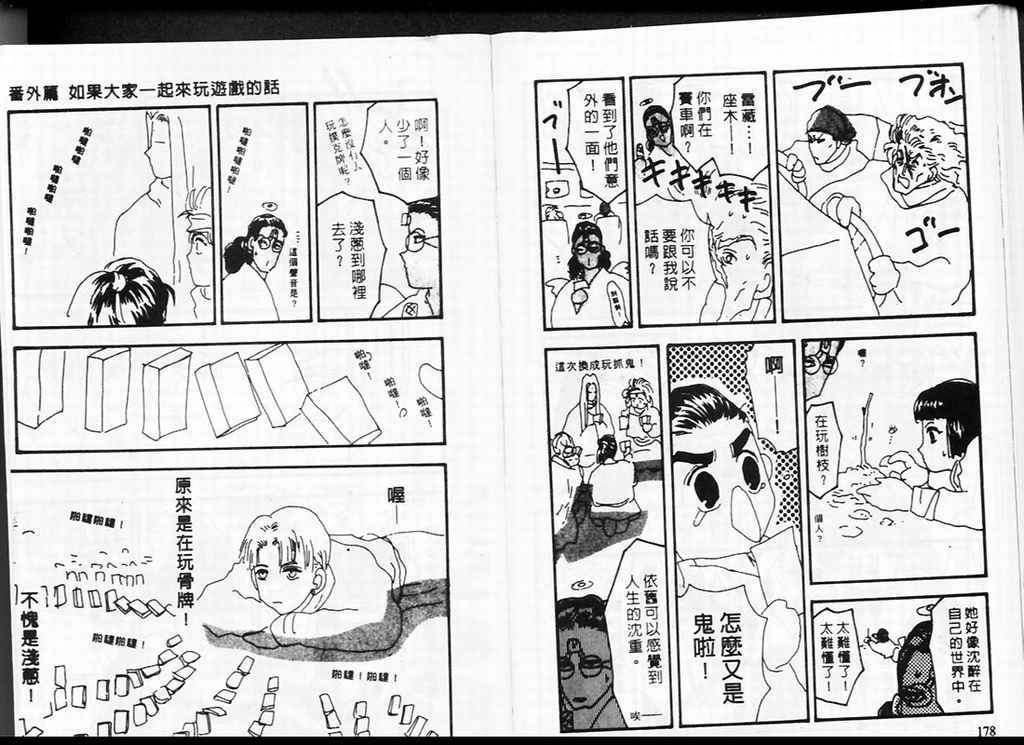 ブー
ブオン
ゴー
雷藏…!
座木——!
你們在
賽車啊?
キキキキキ
你可以不
要跟我說
話嗎?
看到了他們意
外的一面!
ブー
喔?
在玩樹枝?
個人?
啊——!
怎麼又是
鬼啦!
這次換成玩抓鬼!
依舊可以感覺到
人生的沈重。
唉——
她好像沈醉在
自己的世界中。
太難懂了!
太難懂了!
178
番外篇 如果大家一起來玩遊戲的話
啊!好像
少了一個
人。
怎麼沒有人
玩撲克牌呢?
淺蔥到哪裡
去了?
啪噠啪噠!
…這個聲音是?
啪噠啪噠
啪噠啪噠
啪噠啪噠!
啪噠!
啪噠!
啪噠!
喔——
原來是在玩骨牌!
啪噠啪噠!
啪噠啪噠!
啪噠!啪噠!
不愧是淺蔥!